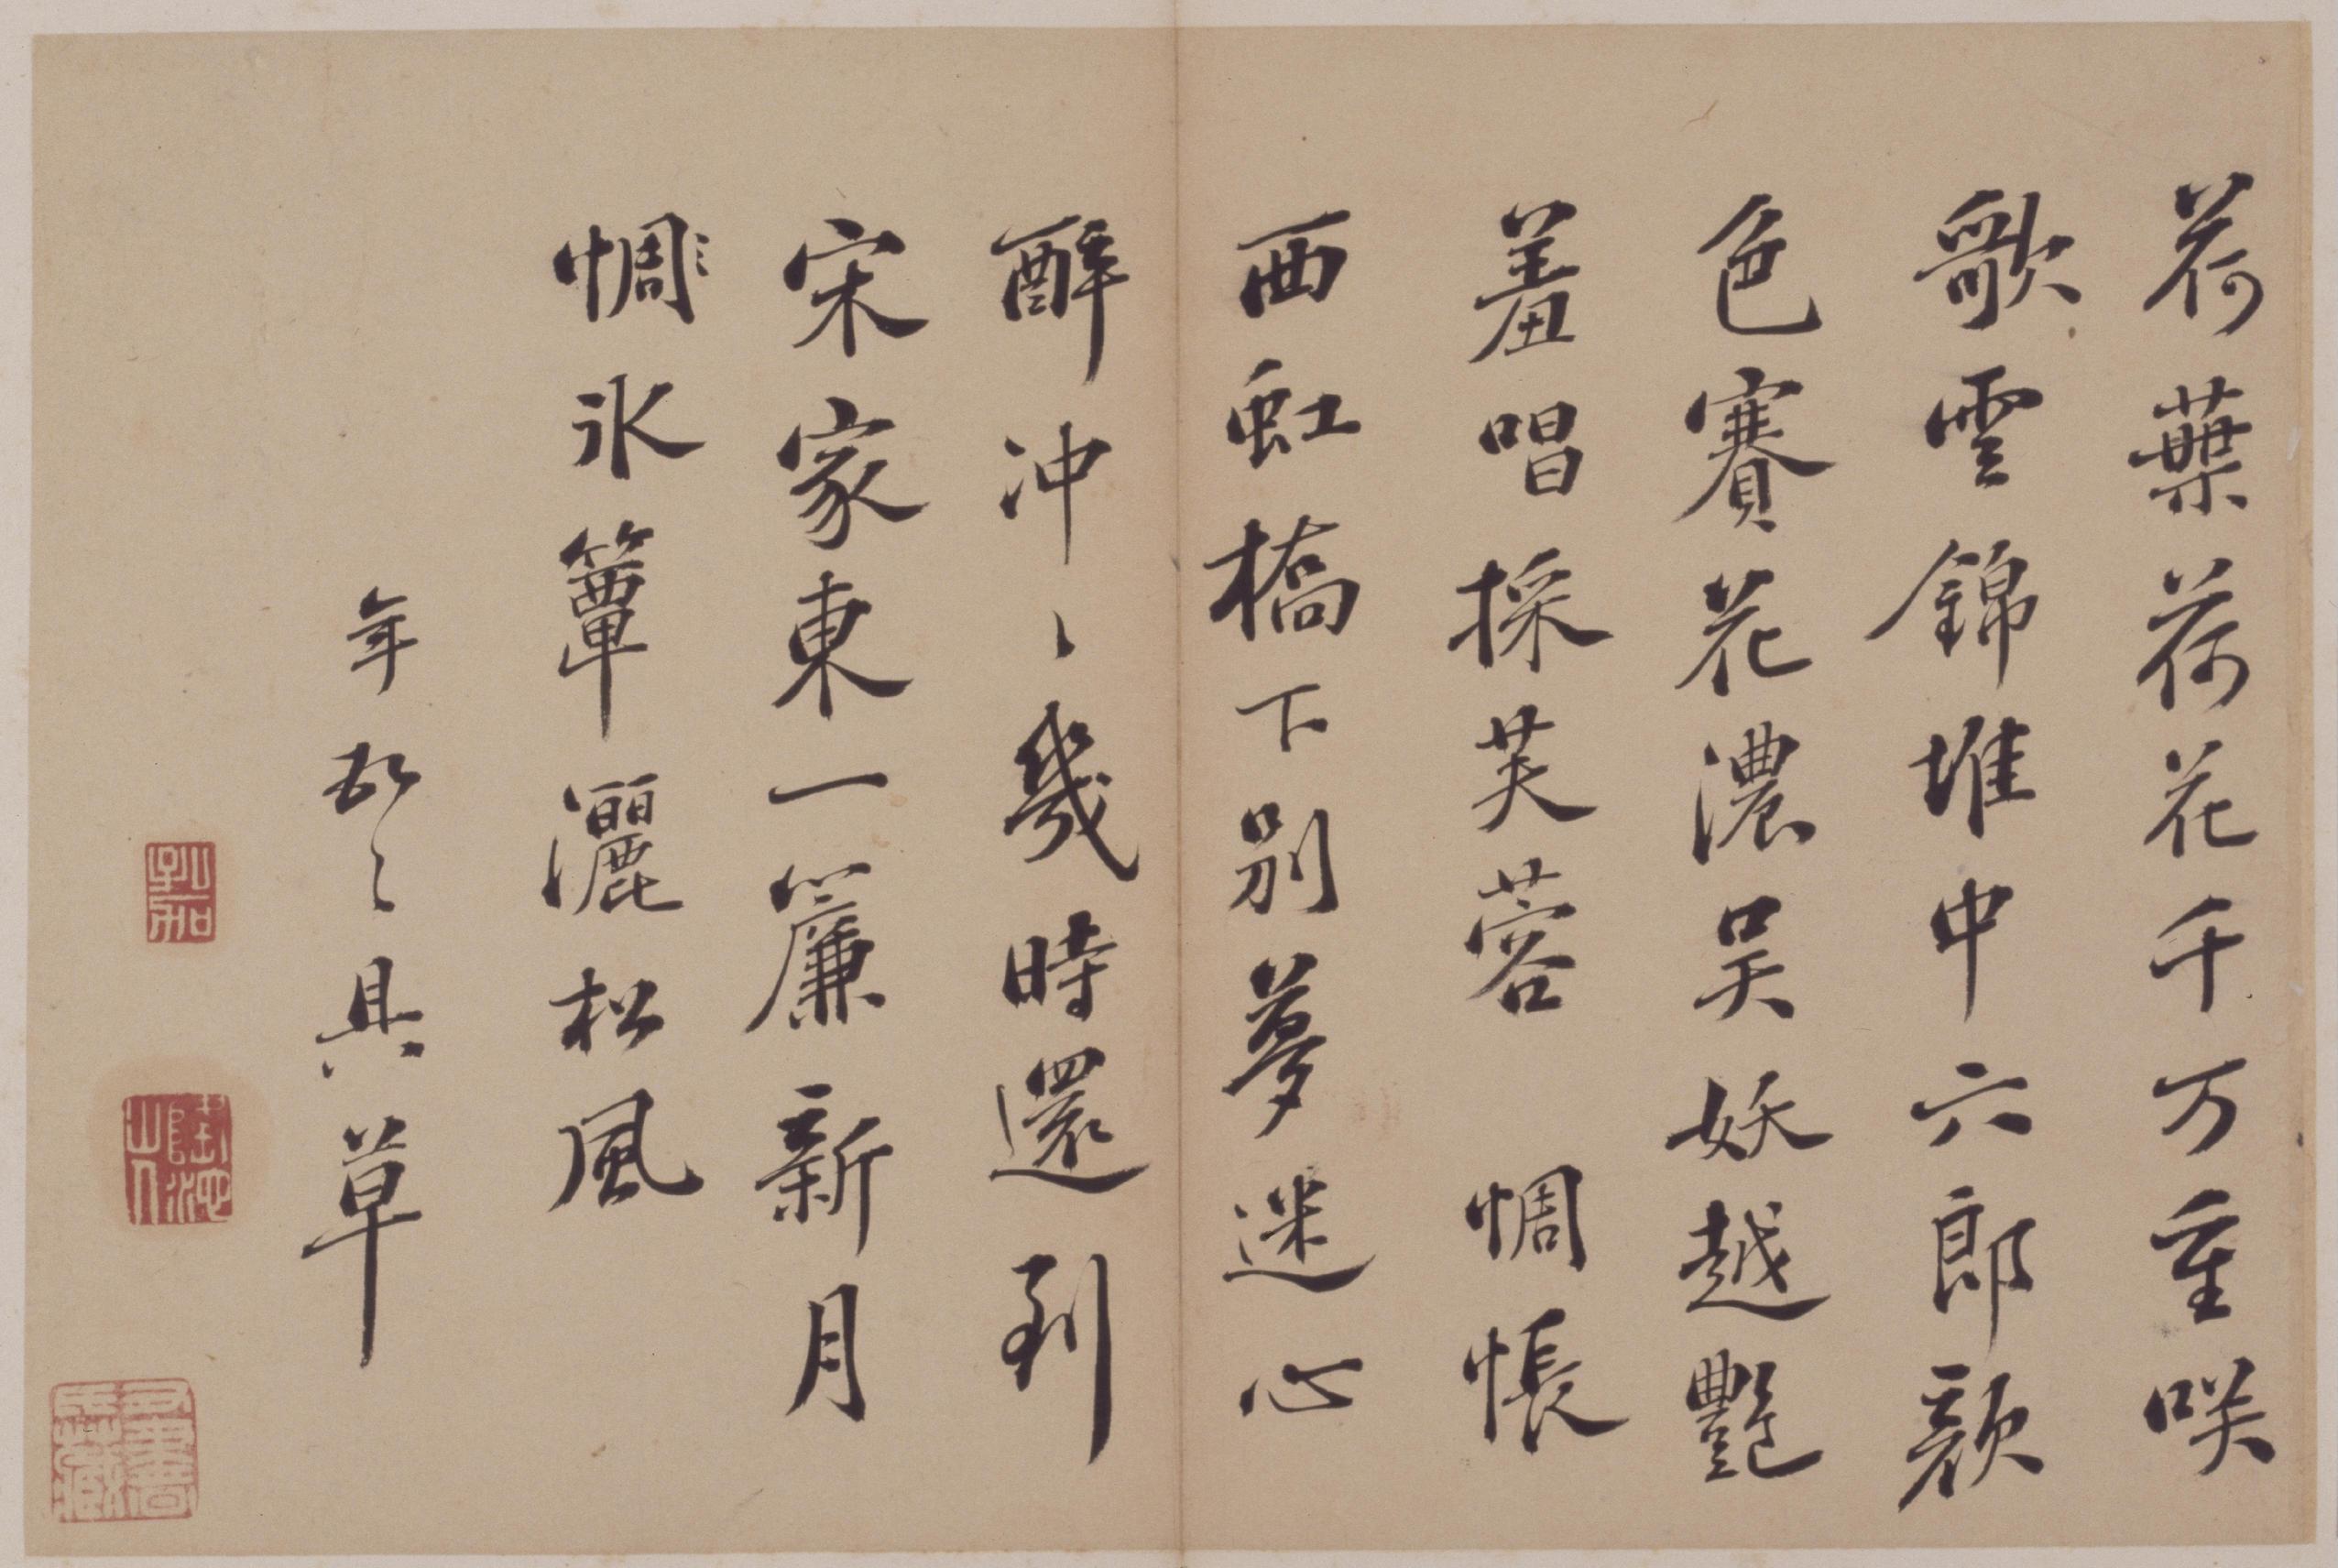 荷葉荷花千万重咲
歌雲錦堆中六郎顔
色賽花濃吴妖越艷
羞唱採芙蓉 惆悵
西虹橋下别夢迷心
醉冲〻幾時還到
宋家東一簾新月
惆氷簟灑松風
年 具草